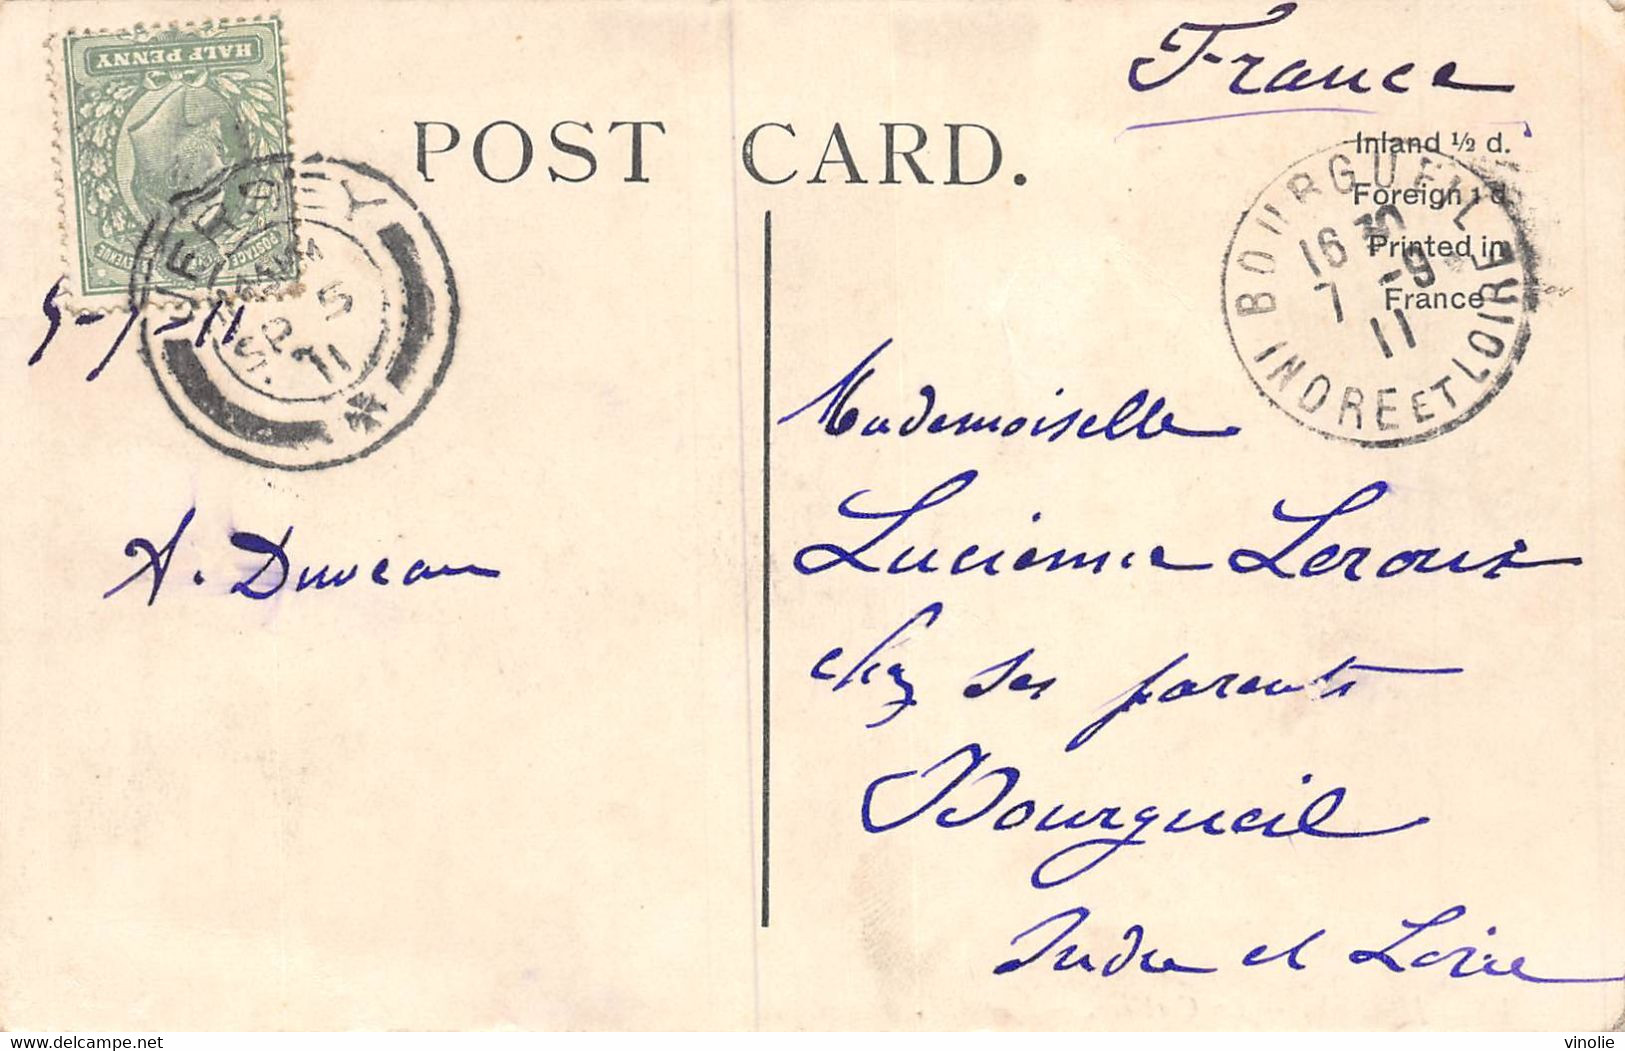 HALF PENNY
POSTAGE
REVENUE
JERSEY
5
11
POST CARD.
France
Inland ½ d.
Foreign 1 d.
Printed in
France
BOURGUEIL
16 30
7 -9
11
INDRE ET LOIRE
Mademoiselle
Lucienne Leroux
chez ses parents
Bourgueil
Indre et Loire
A. Duveau
delcampe.net
vinolie